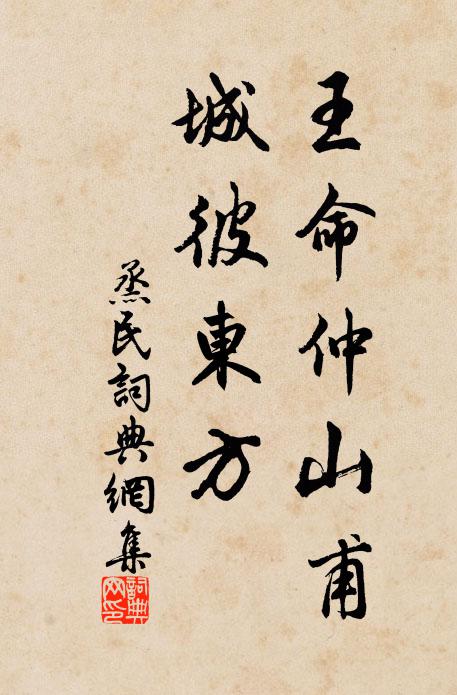 王命仲山甫
城彼東方
烝民詞典網集
詞典
网印